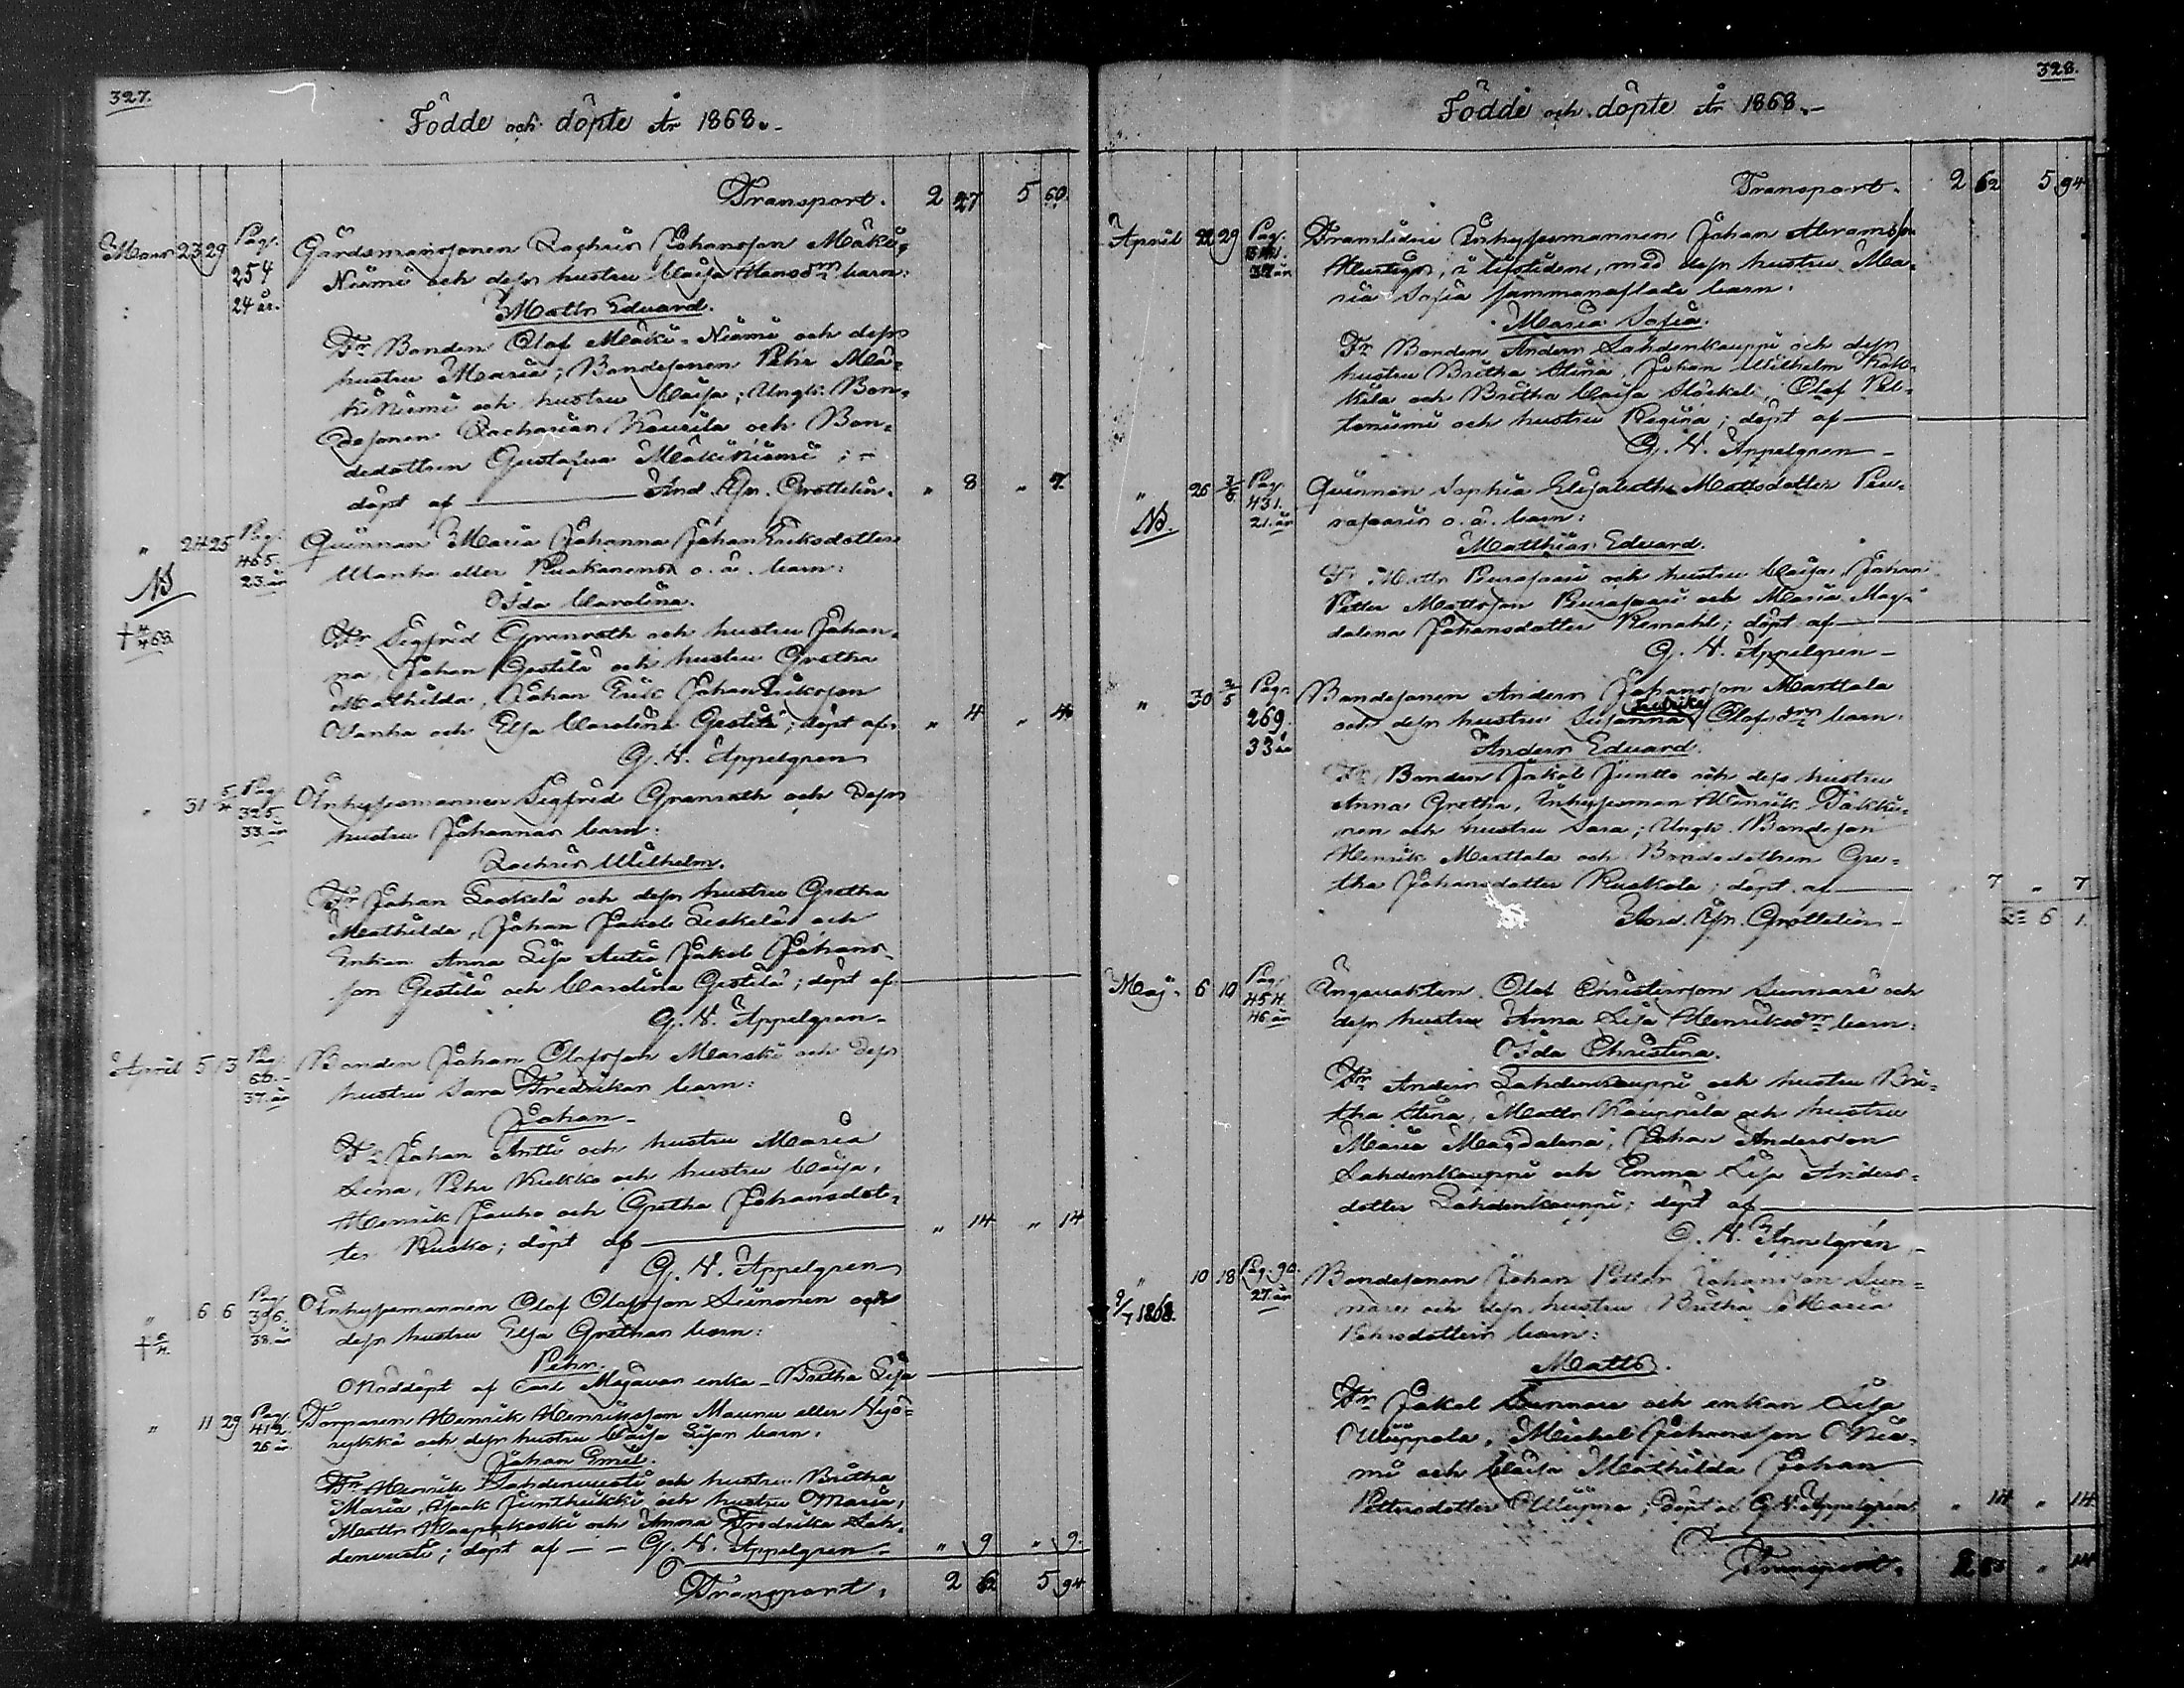 327.
Födde och döpte År 1868.-
Transport. 2 27 5 60.
Mars 23 29 Pag. 254 24 år. Gårdsmanssonen Zachris Johansson Mäki-
Niemi och dess hustru Caisa Hansdr barn:
Matts Eduard.
Fr Bonden Olof Mäki-Niemi och dess
hustru Maria; Bondesonen Pehr Mä-
kiNiemi och hustru Caisa; Ungk. Bon-
desonen Zacharias Kaurila och Bon-
dedottren Gustafva MäkiNiemi; -
döpt af And. Joh. Grottelin. " 8 " 7.
" 24 25 Pag. 465. 23. år Qvinnan Maria Johanna JohanEriksdotter
NB Wanha eller Ruokanens o. ä. barn:
Ida Carolina.
† 4/4 68. Fr Sigfrid Granroth och hustru Johan-
na, Johan Gestilä och hustru Gretha
Mathilda, Johan Erik JohanEriksson
Wanha och Elsa Carolina Gestilä; döpt af " 4 " 4
G. N. Appelgren
" 31 5/4 Pag. 325. 33. år Inhysesmannen Sigfrid Granroth och dess
hustru Johannas barn:
Zachris Wilhelm.
Fr Johan Leskelä och dess hustru Gretha
Mathilda, Johan Jakob Leskelä och
Enkan Anna Lisa Autio Jakob Johans-
son Gestilä och Carolina Gestilä; döpt af
G. N. Appelgren-
April 5 13 Pag. 66.- 37. år Bonden Johan Olofsson Marski och dess
hustru Sara Fredrikas barn:
Johan-
Fr Johan Antti och hustru Maria
Lena, Pehr Kukko och hustru Caisa,
Henrik Jauho och Gretha Johansdot-
ter Rusko; döpt af " 14 " 14
G. N. Appelgren
" 6 6 Pag. 396. 38. år Inhysesmannen Olof Olofsson Siironen och
† 6/4. dess hustru Elsa Grethas barn:
Pehr.
Nöddöpt af Carl Majavas enka - Britha Lisa
" 11 29 Pag. 412. 26 år Torparen Henrik Henriksson Maunu eller Nyö-
rykkä och dess hustru Caisa Lisas barn:
Johan Emil.
Fr Henrik Lahdenvesi och hustru Britha
Maria, Isaak Juntikka och hustru Maria,
Matts Haapakoski och Anna Fredrika Lah-
denvesi; döpt af - - G. N. Appelgren- " 9 " 9.
Transport. 2 62 5 94
328.
Födde och döpte År 1868.-
Transport. 2 62 5 94
April 22 29 Pag. 37 år Framlidne Inhysesmannen Johan Abramsson
i lifstiden, med dess hustru Ma-
ria Sofia sammanaflade barn:
Maria Sofia.
Fr Bonden Anders Lahdenkauppi och dess
hustru Britha Stina, Johan Wilhelm
och Britha Caisa Olof Pel-
toniemi och hustru Regina; döpt af
G. N. Appelgren-
" 26 3/5 Pag. 431. 21. år Qvinnan Sophia Elisabeth Mattsdotter Peu-
NB. rasaaris o. ä. barn:
Matthias Eduard.
Fr Matts Peurasaari och hustru Caisa, Johan
Petter Mattsson Peurasaari och Maria Mag-
dalena Johansdotter Remahl; döpt af
G. N. Appelgren-
" 30 3/5 Pag. 269. 33 år Bondesonen Anders Johansson Marttala
och dess hustru Susanna Fredrika Olofsdrs barn:
Anders Eduard.
Fr Bonden Jakob Juntto och dess hustru
Anna Gretha, Inhysesman Henrik
och hustru Sara; Ungk. Bondeson
Henrik Marttala och Bondedottren Gre-
tha Johansdotter Ruokola; döpt af " 7 " 7
And. Joh. Grottelin- 6 1.
Maj. 6 10 Pag. 454. 46 år Ängsvakten Olof Christiersson Sunnari och
dess hustru Anna Lisa Henriksdr barn:
Ida Christina.
Fr Anders Lahdenkauppi och hustru Bri-
tha Stina, Matts Kauppila och hustru
Maria Magdalena, Johan Andersson
Lahdenkauppi och Emma Lisa Anders-
dotter Lahdenkauppi; döpt af
G. N. Appelgren-
" 10 18 Pag. 90. 27. år Bondesonen Johan Petter Johansson Sun-
9/7 1868. nari och dess hustru Britha Maria
Pehrsdotters barn:
Matts.
Fr Jakob Sunnari och enkan Lisa
Michel Johansson Nie-
mi och Caisa Mathilda Johan
Pettersdotter döpt af G. N. Appelgren " 14 " 14
Transport. " 14